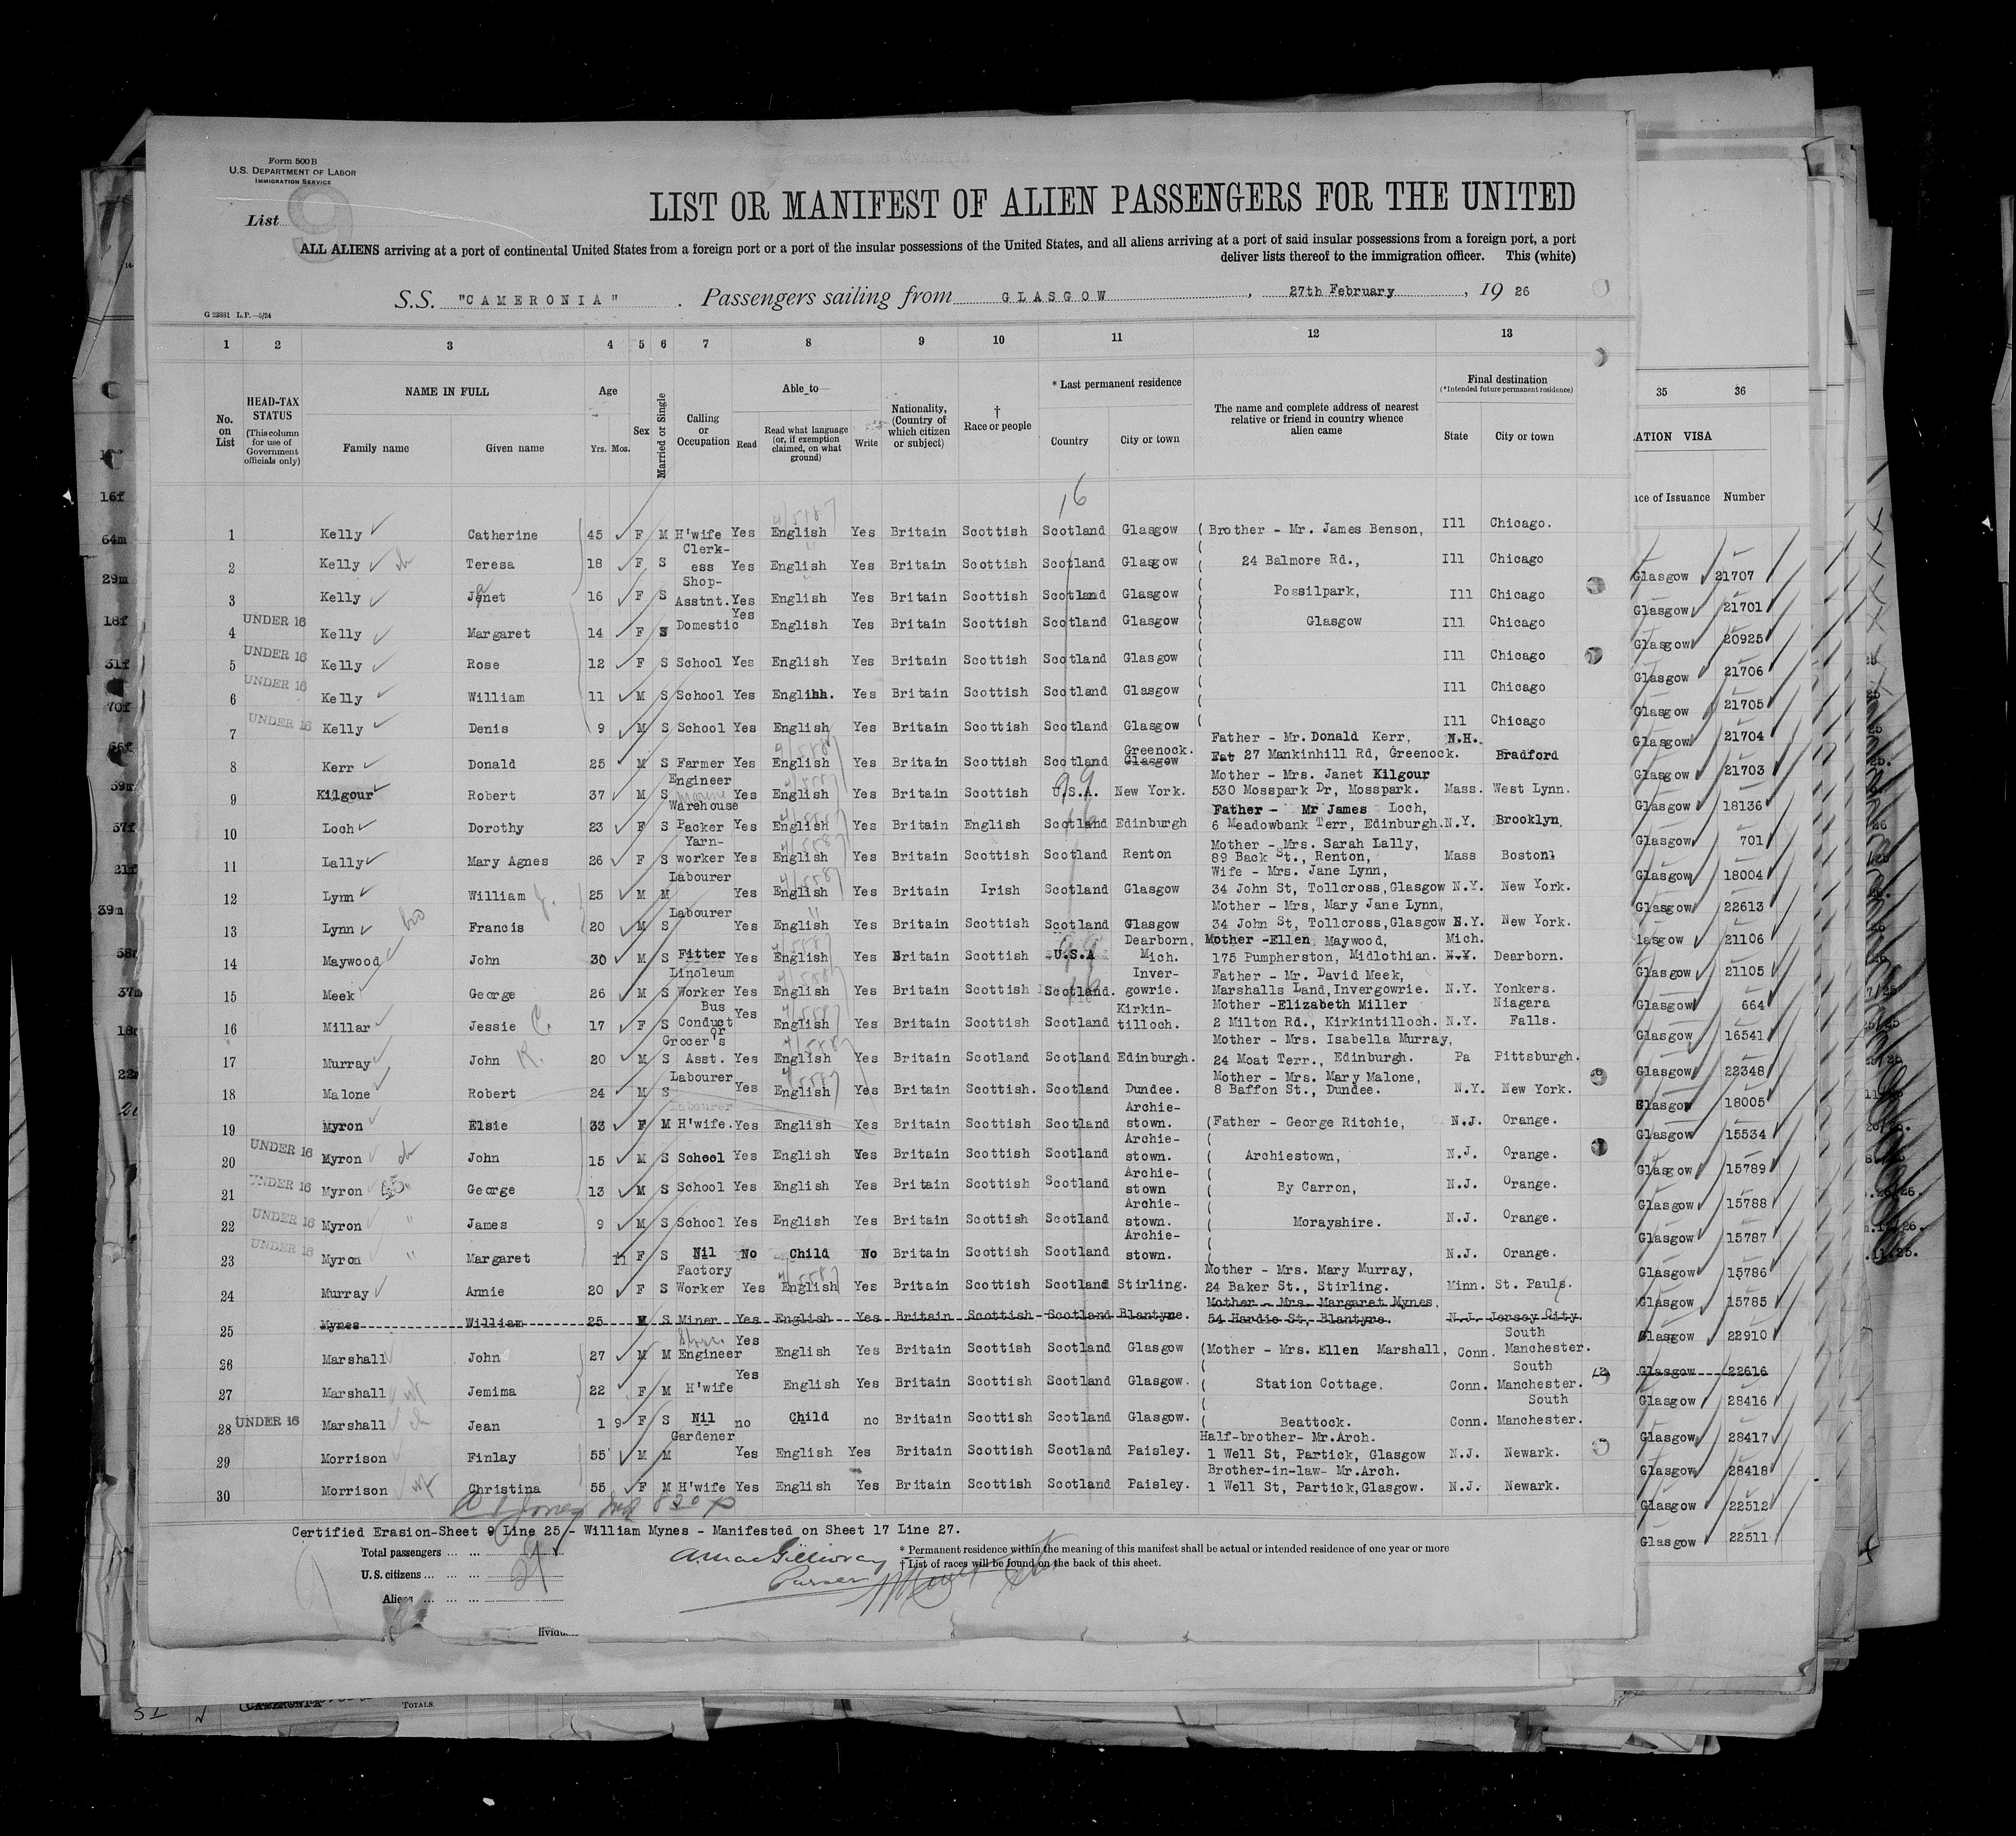 Form 500B
U.S. DEPARTMENT OF LABOR
IMMIGRATION SERVICE
List 9
LIST OR MANIFEST OF ALIEN PASSENGERS FOR THE UNITED
ALL ALIENS arriving at a port of continental United States from a foreign port or a port of the insular possessions of the United States, and all aliens arriving at a port of said insular possessions from a foreign port, a port
deliver lists thereof to the immigration officer. This (white)
S.S. "CAMERONIA" . Passengers sailing from GLASGOW , 27th February , 19 26
G 23881 L.P.—5/24
1 2 3 4 5 6 7 8 9 10 11 12 13
No. on List
HEAD-TAX STATUS (This column for use of Government officials only)
NAME IN FULL
Family name Given name
Age
Yrs. Mos.
Sex
Married or Single
Calling or Occupation
Able to
Read
Read what language (or, if exemption claimed, on what ground)
Write
Nationality, (Country of which citizen or subject)
† Race or people
* Last permanent residence
Country City or town
The name and complete address of nearest relative or friend in country whence alien came
Final destination
(*Intended future permanent residence)
State City or town
35 36
ATION VISA
ce of Issuance Number
16
1 Kelly Catherine 45 F M H'wife Yes English Yes Britain Scottish Scotland Glasgow (Brother - Mr. James Benson, Ill Chicago.
2 Kelly Teresa 18 F S Clerk-ess Yes English Yes Britain Scottish Scotland Glasgow ( 24 Balmore Rd., Ill Chicago
3 Kelly Janet 16 F S Shop-Asstnt. Yes English Yes Britain Scottish Scotland Glasgow ( Possilpark, Ill Chicago
UNDER 16 4 Kelly Margaret 14 F S Domestic Yes English Yes Britain Scottish Scotland Glasgow ( Glasgow Ill Chicago
UNDER 16 5 Kelly Rose 12 F S School Yes English Yes Britain Scottish Scotland Glasgow ( Ill Chicago
UNDER 16 6 Kelly William 11 M S School Yes English. Yes Britain Scottish Scotland Glasgow ( Ill Chicago
UNDER 16 7 Kelly Denis 9 M S School Yes English Yes Britain Scottish Scotland Glasgow ( Ill Chicago
8 Kerr Donald 25 M S Farmer Yes English Yes Britain Scottish Scotland Greenock. Glasgow Father - Mr. Donald Kerr, 27 Mankinhill Rd, Greenock. N.H. Bradford
9 Kilgour Robert 37 M S Engineer Marine Yes English Yes Britain Scottish U.S.A. New York. Mother - Mrs. Janet Kilgour 530 Mosspark Dr, Mosspark. Mass. West Lynn.
10 Loch Dorothy 23 F S Warehouse Packer Yes English Yes Britain English Scotland Edinburgh Father - Mr James Loch, 6 Meadowbank Terr, Edinburgh. N.Y. Brooklyn.
11 Lally Mary Agnes 26 F S Yarn-worker Yes English Yes Britain Scottish Scotland Renton Mother - Mrs. Sarah Lally, 89 Back St., Renton, Mass Boston
12 Lynn William J. 25 M M Labourer Yes English Yes Britain Irish Scotland Glasgow Wife - Mrs. Jane Lynn, 34 John St, Tollcross, Glasgow N.Y. New York.
13 Lynn bro Francis 20 M S Labourer Yes English Yes Britain Scottish Scotland Glasgow Mother - Mrs, Mary Jane Lynn, 34 John St, Tollcross, Glasgow N.Y. New York.
14 Maywood John 30 M S Fitter Yes English Yes Britain Scottish U.S.A Dearborn, Mich. Mother -Ellen Maywood, 175 Pumpherston, Midlothian. Mich. N.Y. Dearborn.
15 Meek George 26 M S Linoleum Worker Yes English Yes Britain Scottish Scotland. Inver-gowrie. Father - Mr. David Meek, Marshalls Land, Invergowrie. N.Y. Yonkers.
16 Millar Jessie C. 17 F S Bus Conductor Yes English Yes Britain Scottish Scotland Kirkin-tilloch. Mother -Elizabeth Miller 2 Milton Rd., Kirkintilloch. N.Y. Niagara Falls.
17 Murray John R. 20 M S Grocer's Asst. Yes English Yes Britain Scotland Scotland Edinburgh. Mother - Mrs. Isabella Murray, 24 Moat Terr., Edinburgh. Pa Pittsburgh.
18 Malone Robert 24 M S Labourer Yes English Yes Britain Scottish. Scotland Dundee. Mother - Mrs. Mary Malone, 8 Baffon St., Dundee. N.Y. New York.
19 Myron Elsie 33 F M H'wife. Yes English Yes Britain Scottish Scotland Archie-stown. (Father - George Ritchie, N.J. Orange.
UNDER 16 20 Myron John 15 M S School Yes English Yes Britain Scottish Scotland Archie-stown. ( Archiestown, N.J. Orange.
UNDER 16 21 Myron George 13 M S School Yes English Yes Britain Scottish Scotland Archie-stown ( By Carron, N.J. Orange.
UNDER 16 22 Myron " James 9 M S School Yes English Yes Britain Scottish Scotland Archie-stown. ( Morayshire. N.J. Orange.
UNDER 16 23 Myron " Margaret 11 F S Nil No Child No Britain Scottish Scotland Archie-stown. ( N.J. Orange.
24 Murray Annie 20 F S Factory Worker Yes English Yes Britain Scottish Scotland Stirling. Mother - Mrs. Mary Murray, 24 Baker St., Stirling. Minn. St. Pauls.
25 Mynes William 25 M S Miner Yes English Yes Britain Scottish Scotland Blantyre. Mother - Mrs. Margaret Mynes, 54 Hardie St, Blantyre. N.J. Jersey City.
26 Marshall John 27 M M Engineer Yes English Yes Britain Scottish Scotland Glasgow (Mother - Mrs. Ellen Marshall, Conn. South Manchester.
27 Marshall wf Jemima 22 F M H'wife Yes English Yes Britain Scottish Scotland Glasgow. ( Station Cottage, Conn. South Manchester.
UNDER 16 28 Marshall ch Jean 1 9 F S Nil no Child no Britain Scottish Scotland Glasgow. ( Beattock. Conn. South Manchester.
29 Morrison Finlay 55 M M Gardener Yes English Yes Britain Scottish Scotland Paisley. Half-brother- Mr.Arch. 1 Well St, Partick, Glasgow N.J. Newark.
30 Morrison wf Christina 55 F M H'wife Yes English Yes Britain Scottish Scotland Paisley. Brother-in-law- Mr.Arch. 1 Well St, Partick, Glasgow. N.J. Newark.
Glasgow 21707
Glasgow 21701
Glasgow 20925
Glasgow 21706
Glasgow 21705
Glasgow 21704
Glasgow 21703
Glasgow 18136
Glasgow 701
Glasgow 18004
Glasgow 22613
lasgow 21106
Glasgow 21105
Glasgow 664
Glasgow 16541
Glasgow 22348
Glasgow 18005
Glasgow 15534
Glasgow 15789
Glasgow 15788
Glasgow 15787
Glasgow 15786
Glasgow 15785
Glasgow 22910
Glasgow 22616
Glasgow 28416
Glasgow 28417
Glasgow 28418
Glasgow 22512
Glasgow 22511
Certified Erasion-Sheet 9 Line 25 - William Mynes - Manifested on Sheet 17 Line 27.
Total passengers
U.S. citizens
Aliens
A MacGillivray
Purser
* Permanent residence within the meaning of this manifest shall be actual or intended residence of one year or more
† List of races will be found on the back of this sheet.
TOTALS.